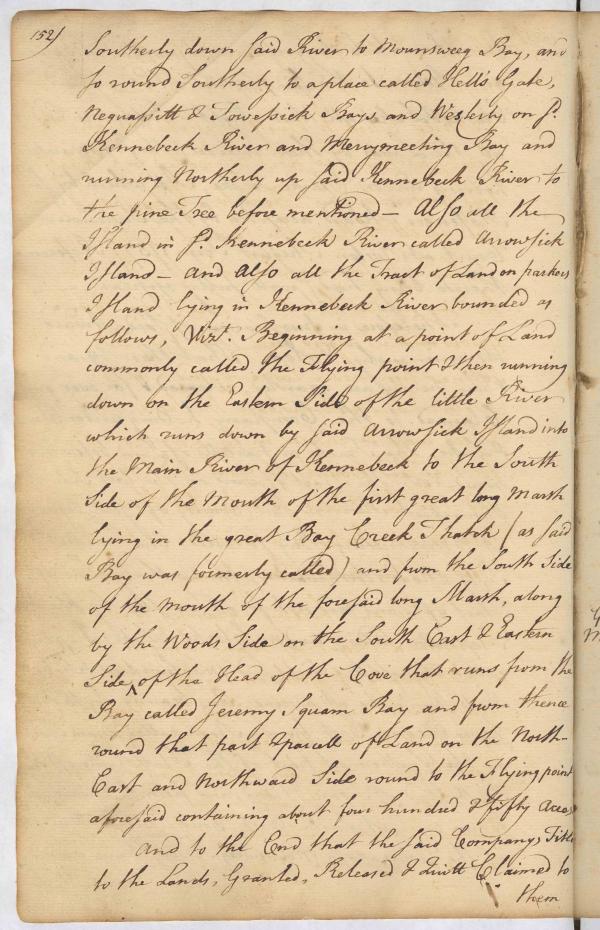 152)
Southerly down said River to Mounsweeg Bay, and
so round Southerly to a place called Hell's Gate,
Nequassitt & Towessick Bays and Westerly on sd.
Kennebeck River and Merrymeeting Bay and
running Northerly up said Kennebeck River to
the pine Tree before mentioned — Also all the
Island in sd. Kennebeck River called Arrowsick
Island — and also all the Tract of Land on parkers
Island lying in Kennebeck River bounded as
follows, Vizt. Beginning at a point of Land
commonly called the Flying point & then running
down on the Eastern Side of the little River
which runs down by said Arrowsick Island into
the Main River of Kennebeck to the South
Side of the Mouth of the first great long Marsh
lying in the great Bay Creek Thatch (as said
Bay was formerly called) and from the South Side
of the mouth of the foresaid long Marsh, along
by the Woods Side on the South East & Eastern
Side ^ of the Head of the Cove that runs from the
Bay called Jeremy Squam Bay and from thence
round that part & parcell of Land on the North-
East and Northward Side round to the Flying point
aforesaid containing about four hundred & fifty Acres
And to the End that the said Companys Title
to the Lands, Granted, Released & Quitt Claimed to
them